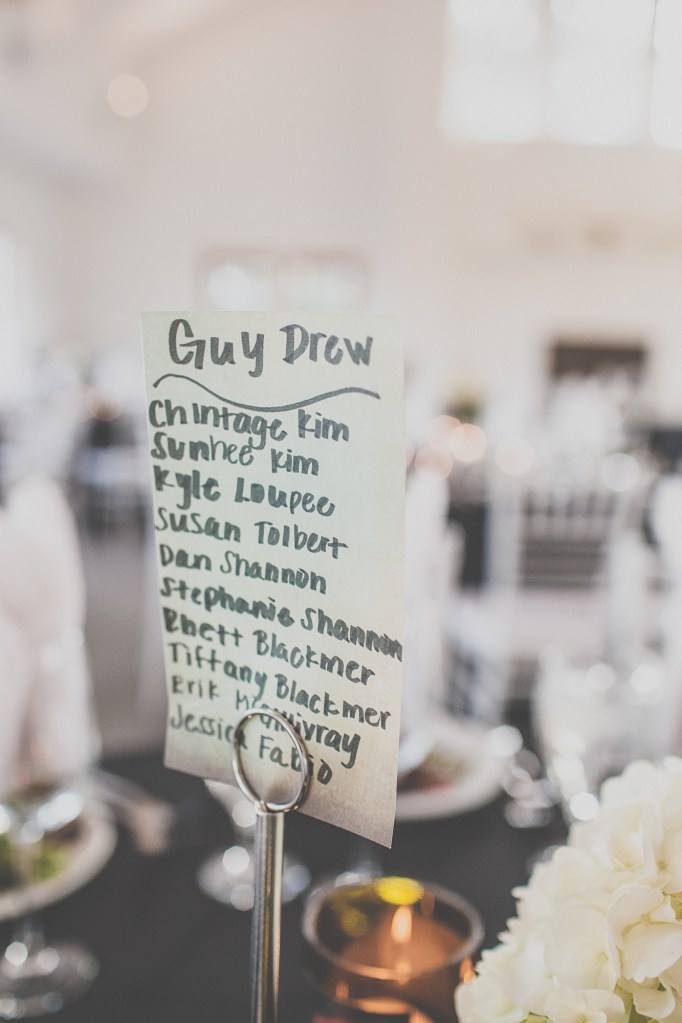 Guy Drew
Chintage Kim
Sunhee Kim
Kyle Loupee
Susan Tolbert
Dan Shannon
Stephanie Shannon
Rhett Blackmer
Tiffany Blackmer
Erik
Jessica Fabio